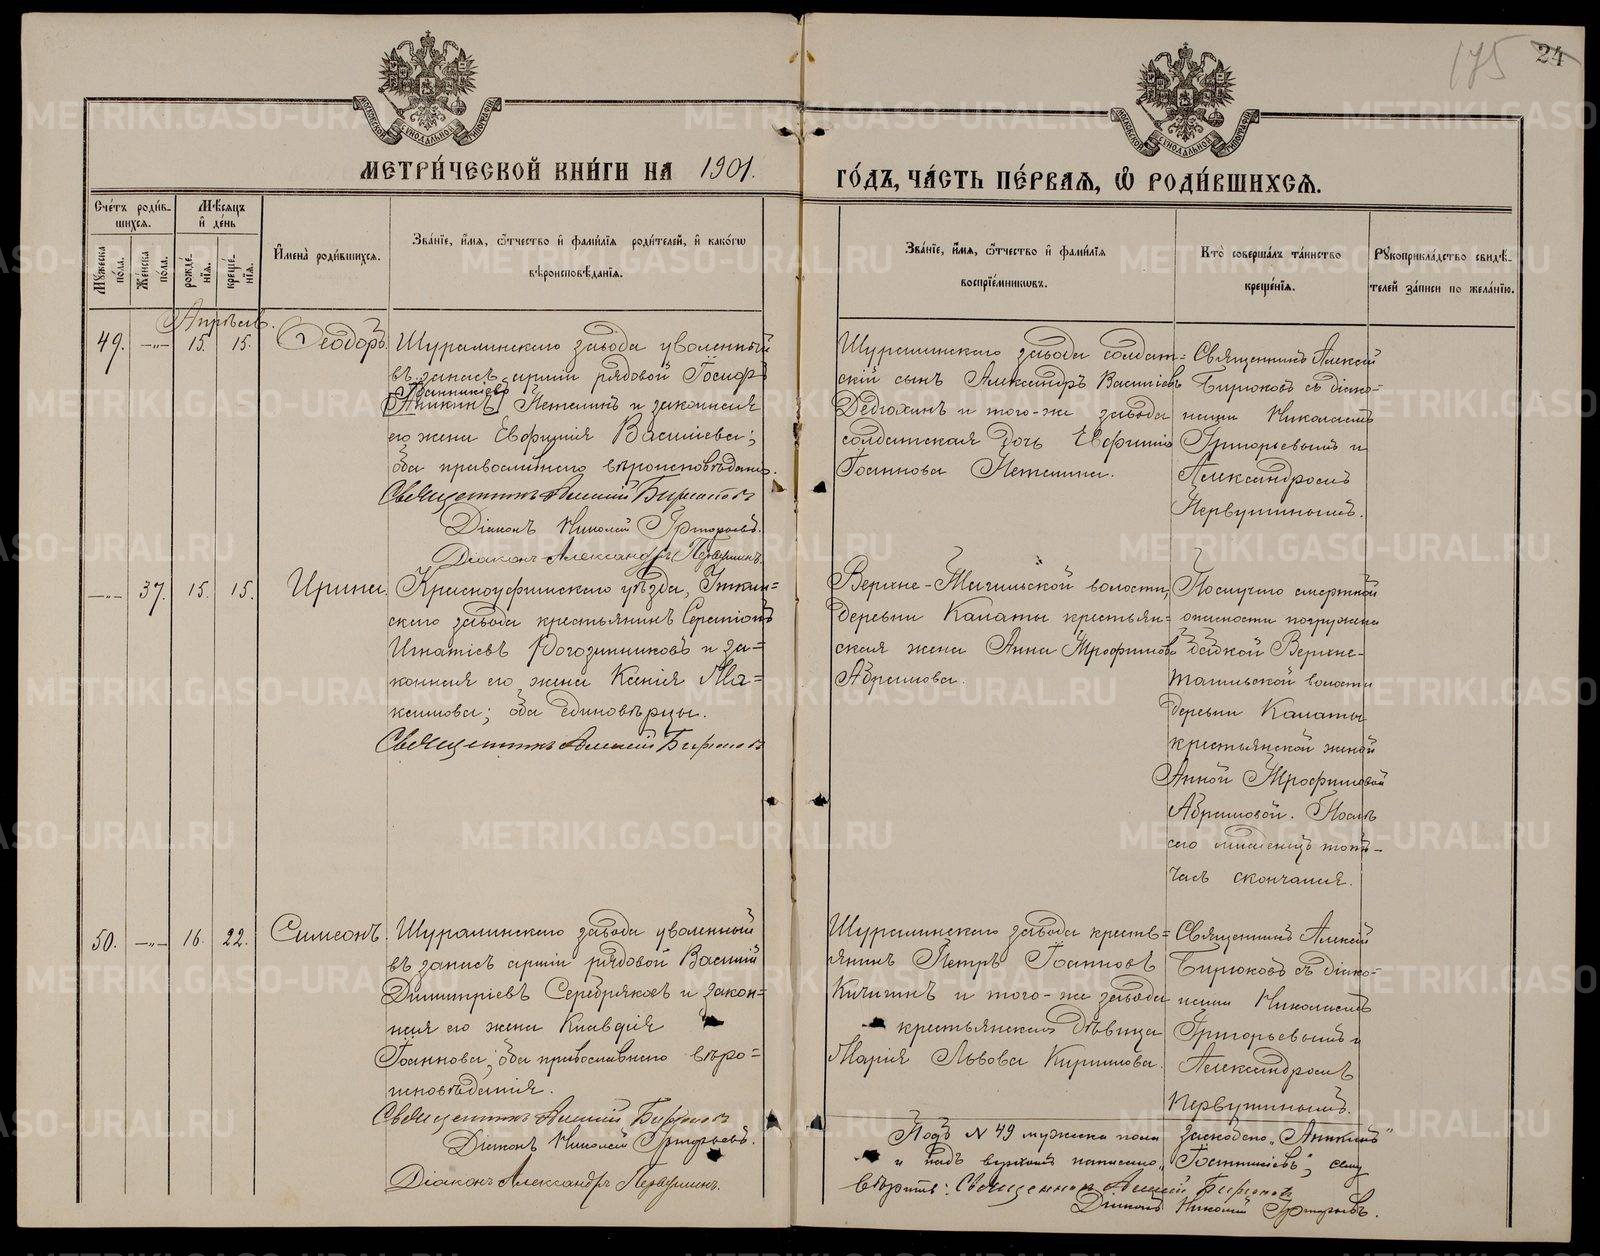 175
24
МОСКОВСКОЙ СѴНОДАЛЬНОЙ ТИПОГРАФІИ
МОСКОВСКОЙ СѴНОДАЛЬНОЙ ТИПОГРАФІИ
МЕТРИ́ЧЕСКОЙ КНИ́ГИ НА 1901.
ГО́ДЪ, ЧА́СТЬ ПЕ́РВАѦ, Ѽ РОДИ́ВШИХСѦ.
Сче́тъ роди́в-
шихсѧ.
Мужеска по́ла.
Же́нска по́ла.
Мѣ́сѧцъ
и҆ де́нь
рожде́-
нїѧ.
креще́-
нїѧ.
И҆мена̀ роди́вшихсѧ.
Зва́нїе, и҆́мѧ, ѻ҆́тчество и҆ фами́лїѧ роди́телей, и҆ како́гѡ
вѣроисповѣ́данїѧ.
Зва́нїе, и҆́мѧ, ѻ҆́тчество и҆ фами́лїѧ
воспрїе́мникѡвъ.
Кто̀ соверша́лъ та́инство
креще́нїѧ.
Рꙋкоприкла́дство свидѣ́-
телей за́писи по жела́нїю.
Апрѣль.
49. —„— 15. 15. Ѳеодоръ.
Шуралинскаго завода уволенный
въ запасъ арміи рядовой Іосифъ
Іоанникіевъ
[Аникинъ] Нетелинъ и законная
его жена Евфимія Васильева;
оба православнаго вѣроисповѣданія.
Священникъ Алексій Бирюковъ
Діаконъ Николай Григорьевъ.
Діаконъ Александръ Первушинъ.
Шуралинскаго завода солдат=
скій сынъ Александръ Васильевъ
Дедюхинъ и того-же завода
солдатская дочь Евфимія
Іоаннова Нетелина.
Священникъ Алексій
Бирюковъ съ діако-
нами Николаемъ
Григорьевымъ и
Александромъ
Первушинымъ.
—„— 37. 15. 15. Ирина.
Красноуфимскаго уѣзда, Уткин=
скаго завода крестьянинъ Серапіонъ
Игнатіевъ Рогозинниковъ и за=
конная его жена Ксенія Ма=
ксимова; оба единовѣрцы.
Священникъ Алексій Бирюковъ
Верхне-Тагильской волости,
деревни Калаты крестьян=
ская жена Анна Трофимова
Абрамова.
По случаю смертной
опасности погружена
бабкой Верхне-
Тагильской волости
деревни Калаты
крестьянской женой
Анной Трофимовой
Абрамовой. Послѣ
сего младенецъ тотъ-
часъ скончался.
50. —„— 16. 22. Симеонъ.
Шуралинскаго завода уволенный
въ запасъ арміи рядовой Василій
Димитріевъ Серебряковъ и закон=
ная его жена Клавдія
Іоаннова; оба православнаго вѣро=
исповѣданія.
Священникъ Алексій Бирюковъ
Діаконъ Николай Григорьевъ.
Діаконъ Александръ Первушинъ.
Шуралинскаго завода кресть=
янинъ Петръ Іоанновъ
Кичигинъ и того-же завода
крестьянская дѣвица
Марія Львова Кириллова.
Священникъ Алексій
Бирюковъ съ діако-
нами Николаемъ
Григорьевымъ и
Александромъ
Первушинымъ.
Подъ № 49 мужска пола заскоблено „Аникинъ“
и надъ верхомъ написано „Іоанникіевъ“, сему
вѣрить: Священникъ Алексій Бирюковъ
Діаконъ Николай Григорьевъ.
METRIKI.GASO-URAL.RU